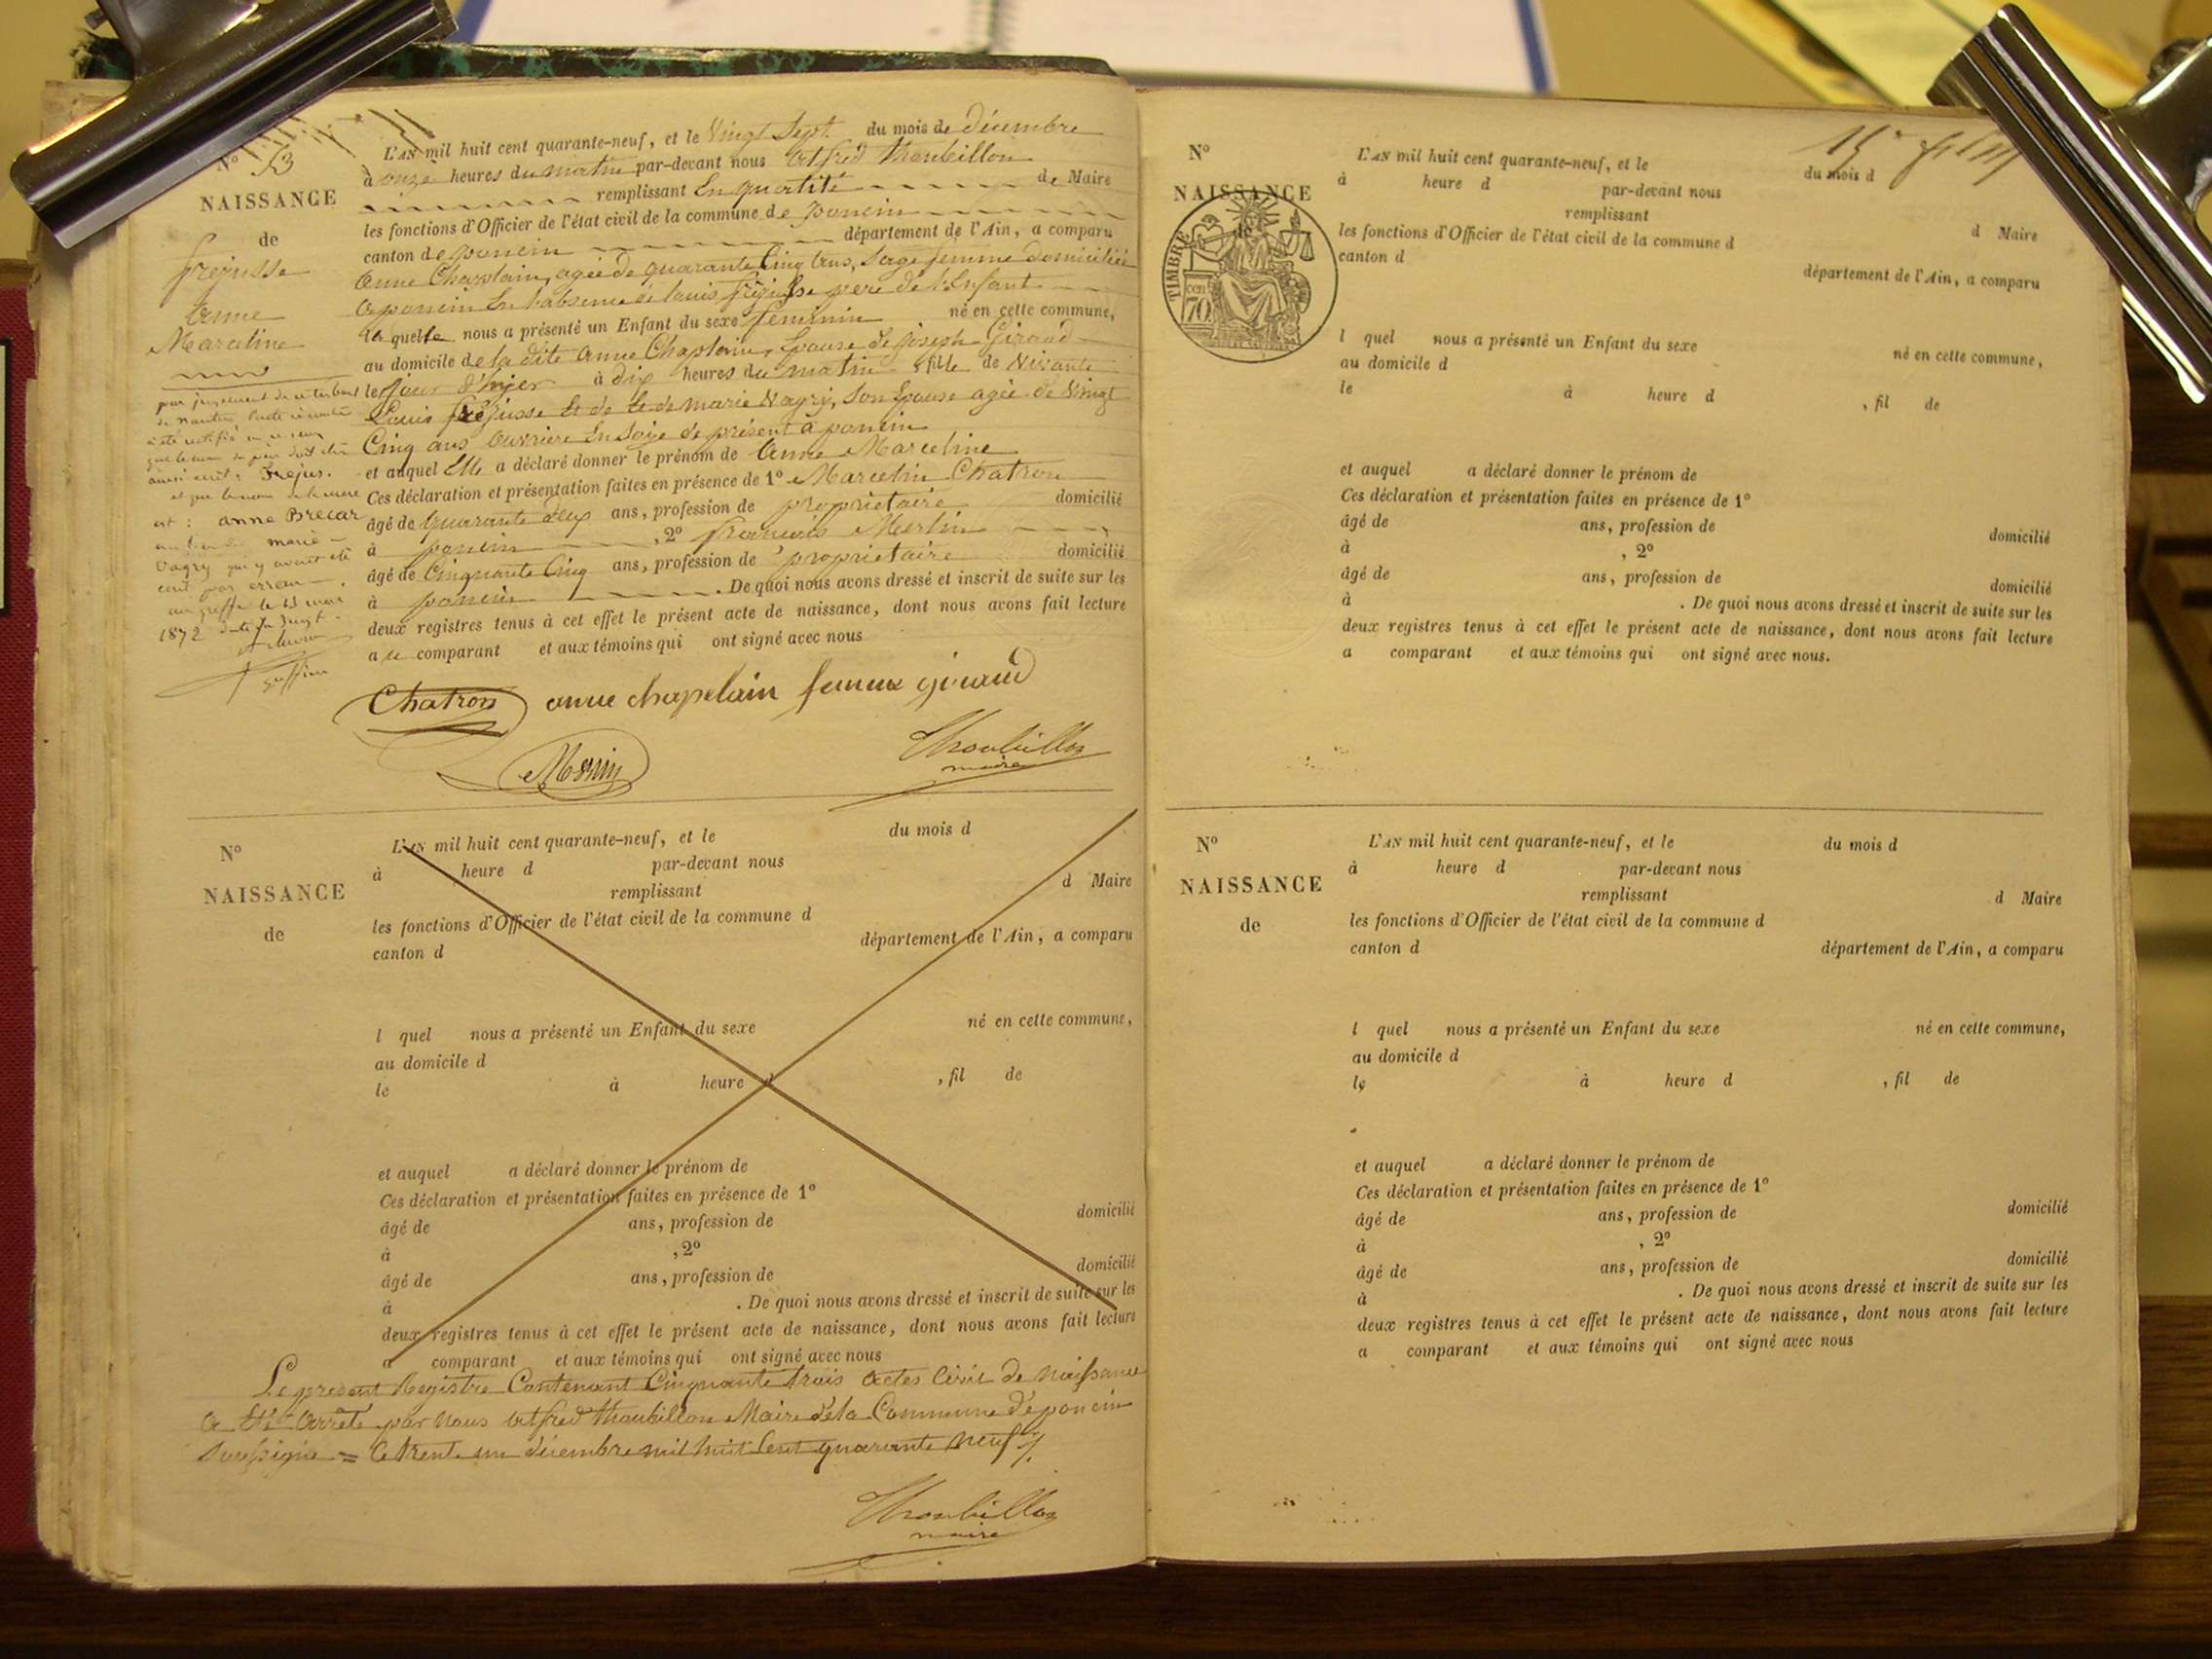 N° 53
NAISSANCE
de
frejusse
Anne
Marceline
L'AN mil huit cent quarante-neuf, et le Vingt Sept du mois de décembre
à onze heures du matin par-devant nous Alfred Thoubillon
remplissant En quatité de Maire
les fonctions d'Officier de l'état civil de la commune de poncin
canton de poncin département de l'Ain, a comparu
Anne Chaplain, agée de quarante Cinq ans, Sage femme domiciliée
a poncin En l'absence de louis frejusse pere de l'Enfant
laquelle nous a présenté un Enfant du sexe feminin né en cette commune,
au domicile de la dite Anne Chaplain, Epouse de joseph Giraud
le jour d'hjer à dix heures du matin fille de
Louis frejusse Et de marie Vagry, Son Epouse agée de Vingt
Cinq ans Ouvriere En Soye de présent a poncin
et auquel Elle a déclaré donner le prénom de Anne Marceline
Ces déclaration et présentation faites en présence de 1° Marcelin Chatron
âgé de quarante deux ans, profession de proprietaire domicilié
à poncin , 2° francois Merlin
âgé de Cinquante Cinq ans, profession de proprietaire domicilié
à poncin . De quoi nous avons dressé et inscrit de suite sur les
deux registres tenus à cet effet le présent acte de naissance, dont nous avons fait lecture
a la comparant et aux témoins qui ont signé avec nous
par jugement de ce tribunal
de Nantua, l'acte ci contre
a été rectifié en ce sens
que le nom du pere doit être
ainsi écrit: Frejus.
et que le nom de la mere
est : anne Brecar
au lieu de marie
Vagry qui y avait été
écrit par erreur
au greffe le 23 mars
1872
Chatron anne chapelain femme giraud
Thoubillon
maire
N°
NAISSANCE
de
L'AN mil huit cent quarante-neuf, et le du mois d
à heure d par-devant nous
remplissant d Maire
les fonctions d'Officier de l'état civil de la commune d
canton d département de l'Ain, a comparu
l quel nous a présenté un Enfant du sexe né en cette commune,
au domicile d
le à heure d , fil de
et auquel a déclaré donner le prénom de
Ces déclaration et présentation faites en présence de 1°
âgé de ans, profession de domicilié
à , 2°
âgé de ans, profession de domicilié
à . De quoi nous avons dressé et inscrit de suite sur les
deux registres tenus à cet effet le présent acte de naissance, dont nous avons fait lecture
a comparant et aux témoins qui ont signé avec nous
Le present Registre Contenant Cinquante trois actes Civil de naissance
a Eté Arrête par nous Alfred thoubillon Maire de la Commune de poncin
Soussigné = Ce trente un décembre mil huit Cent quarante neuf
Thoubillon
maire
N°
NAISSANCE
TIMBRE
cen
70
L'AN mil huit cent quarante-neuf, et le du mois d
à heure d par-devant nous
remplissant d Maire
les fonctions d'Officier de l'état civil de la commune d
canton d département de l'Ain, a comparu
l quel nous a présenté un Enfant du sexe né en cette commune,
au domicile d
le à heure d , fil de
et auquel a déclaré donner le prénom de
Ces déclaration et présentation faites en présence de 1°
âgé de ans, profession de domicilié
à , 2°
âgé de ans, profession de domicilié
à . De quoi nous avons dressé et inscrit de suite sur les
deux registres tenus à cet effet le présent acte de naissance, dont nous avons fait lecture
a comparant et aux témoins qui ont signé avec nous.
N°
NAISSANCE
de
L'AN mil huit cent quarante-neuf, et le du mois d
à heure d par-devant nous
remplissant d Maire
les fonctions d'Officier de l'état civil de la commune d
canton d département de l'Ain, a comparu
l quel nous a présenté un Enfant du sexe né en cette commune,
au domicile d
le à heure d , fil de
et auquel a déclaré donner le prénom de
Ces déclaration et présentation faites en présence de 1°
âgé de ans, profession de domicilié
à , 2°
âgé de ans, profession de domicilié
à . De quoi nous avons dressé et inscrit de suite sur les
deux registres tenus à cet effet le présent acte de naissance, dont nous avons fait lecture
a comparant et aux témoins qui ont signé avec nous